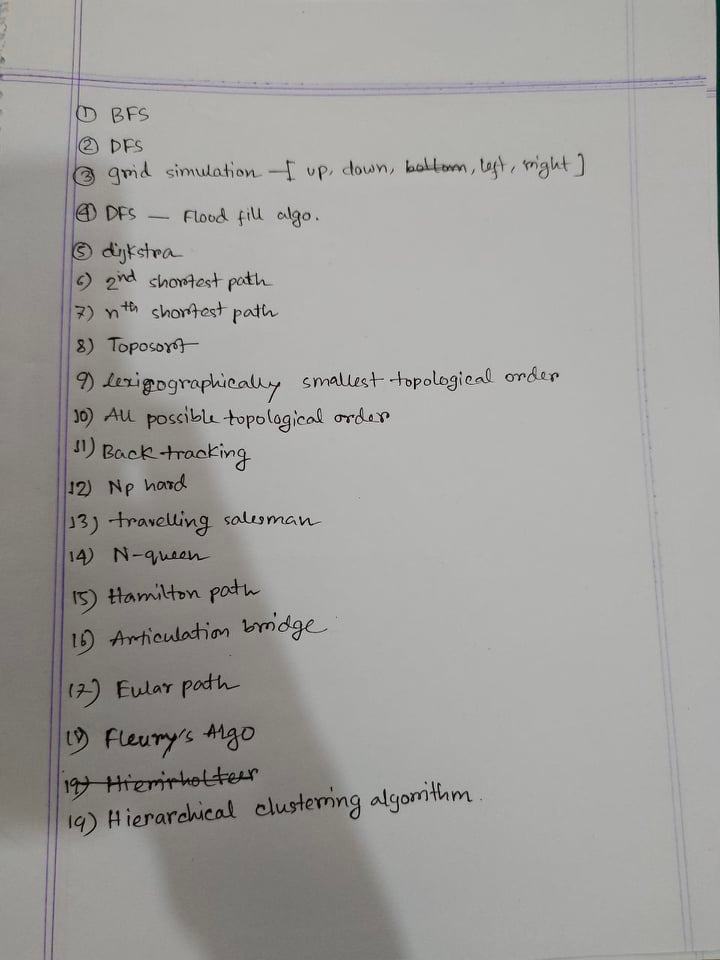 ① BFS
② DFS
③ grid simulation —[ up, down, bottom, left, right ]
④ DFS — Flood fill algo.
⑤ dijkstra
6) 2nd shortest path
7) nth shortest path
8) Toposort
9) lexigographically smallest topological order
10) All possible topological order
11) Back tracking
12) Np hard
13) travelling salesman
14) N-queen
15) Hamilton path
16) Articulation bridge
17) Eular path
18) Fleury's Algo
19)
19) Hierarchical clustering algorithm.